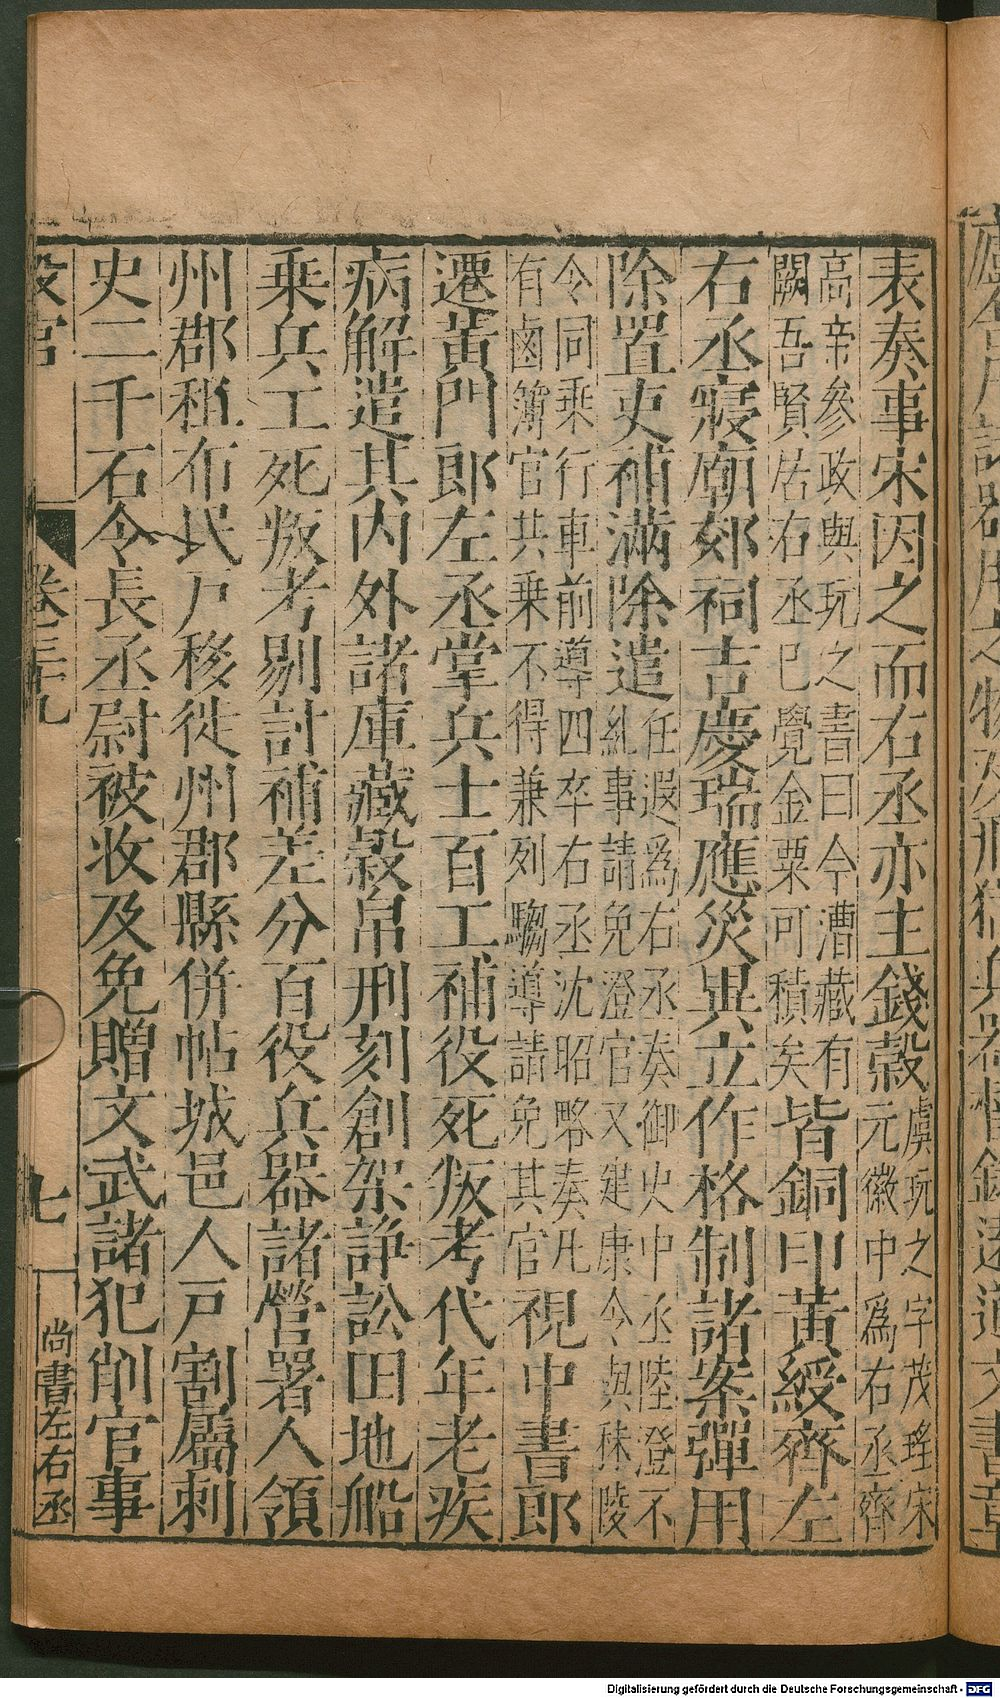 表奏事宋因之而右丞亦主錢穀虞玩之字茂瑤宋元徽中爲右丞齊
高帝參政與玩之書曰今漕藏有闕吾賢居右丞已覺金粟可積矣皆銅印黃綬齊左
右丞寢廟郊祠吉慶瑞應災異立作格制諸案彈用
除置吏補滿除遣任遐爲右丞奏御史中丞陸澄不糺事請免澄官又建康令與秣陵
令同乘行車前導四卒右丞沈昭略奏凡有鹵簿官共乘不得兼列騶導請免其官視中書郎
遷黃門郎左丞掌兵士百工補役死叛考代年老疾
病解遣其内外諸庫藏穀帛刑刻創架諍訟田地船
乘兵工死叛考剔討補差分百役兵器諸營署人領
州郡租布民戶移徙州郡縣併帖城邑人戸割屬刺
史二千石令長丞尉被收及免贈文武諸犯削官事
設官 卷三十九 七 尚書左右丞
Digitalisierung gefördert durch die Deutsche Forschungsgemeinschaft - DFG